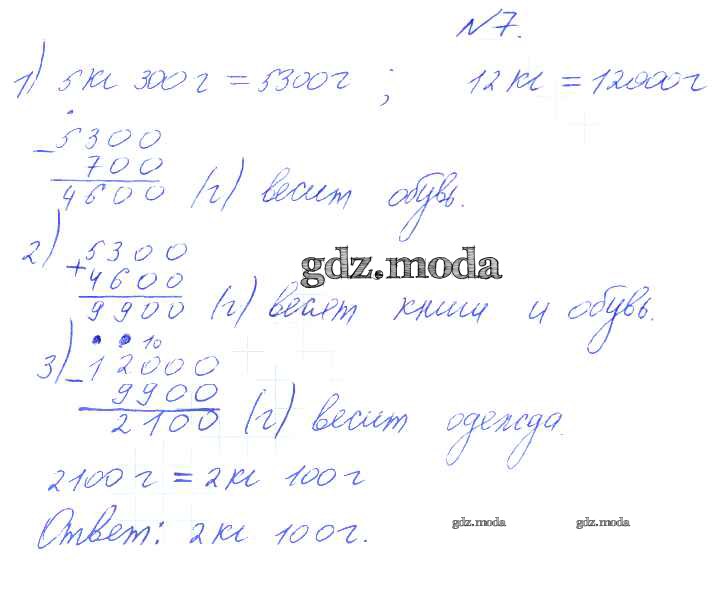 №7.
1) 5кг 300г = 5300г ; 12кг = 12000г
5300
- 700
4600 (г) весит обувь.
2) 5300
+ 4600
9900 (г) весят книги и обувь.
gdz.moda
10
3) - 12000
9900
2100 (г) весит одежда.
2100г = 2кг 100г
Ответ: 2кг 100г.
gdz.moda gdz.moda